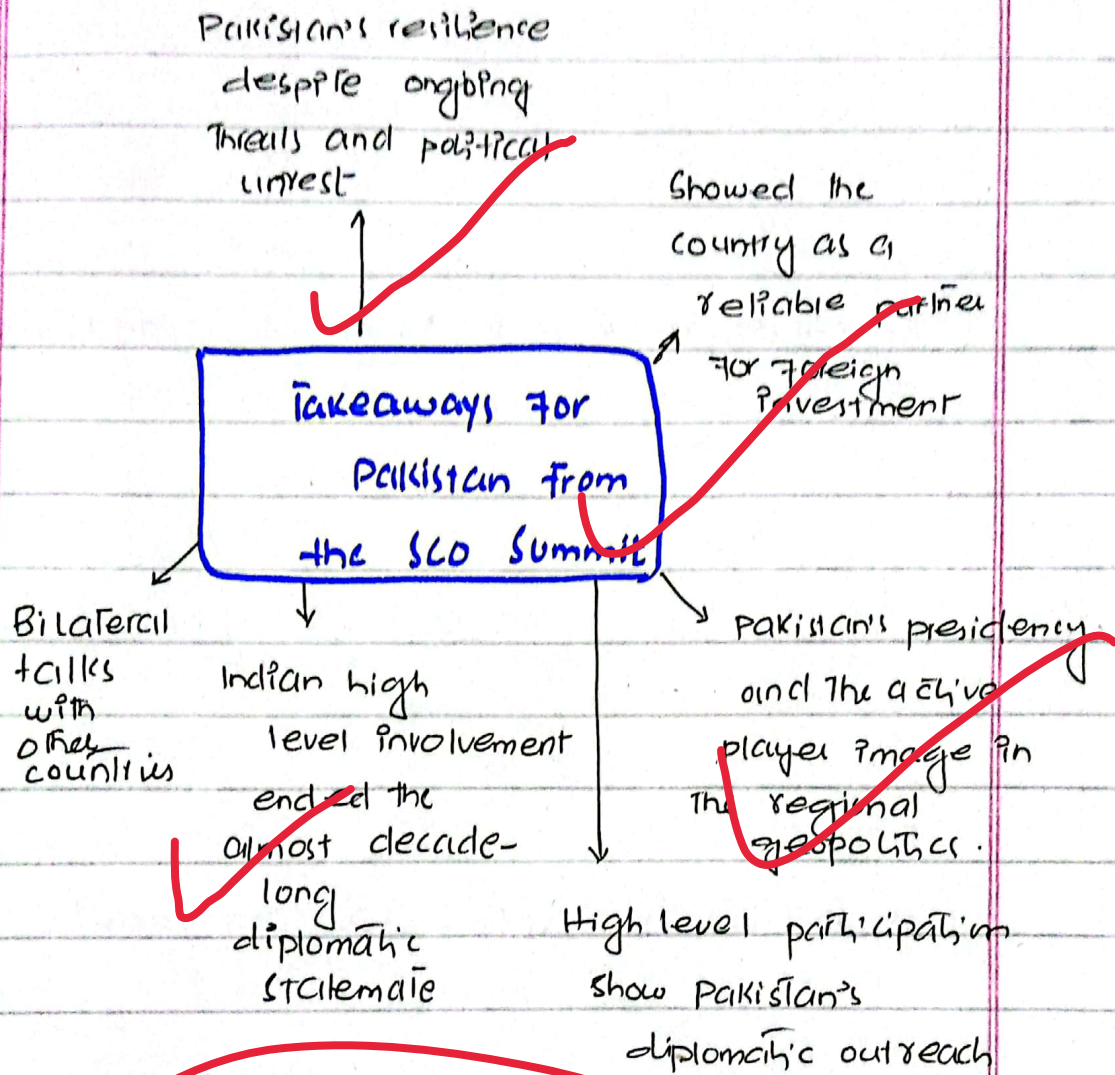 Pakistan's resilience
despite ongoing
Threats and political
unrest
Showed the
country as a
reliable partner
for foreign
investment
Takeaways for
Pakistan from
the SCO Summit
Bilateral
talks
with
other
countries
Indian high
level involvement
ended the
almost decade-
long
diplomatic
stalemate
High level participation
show Pakistan's
diplomatic outreach
Pakistan's presidency
and The active
player image in
The regional
geopolitics.